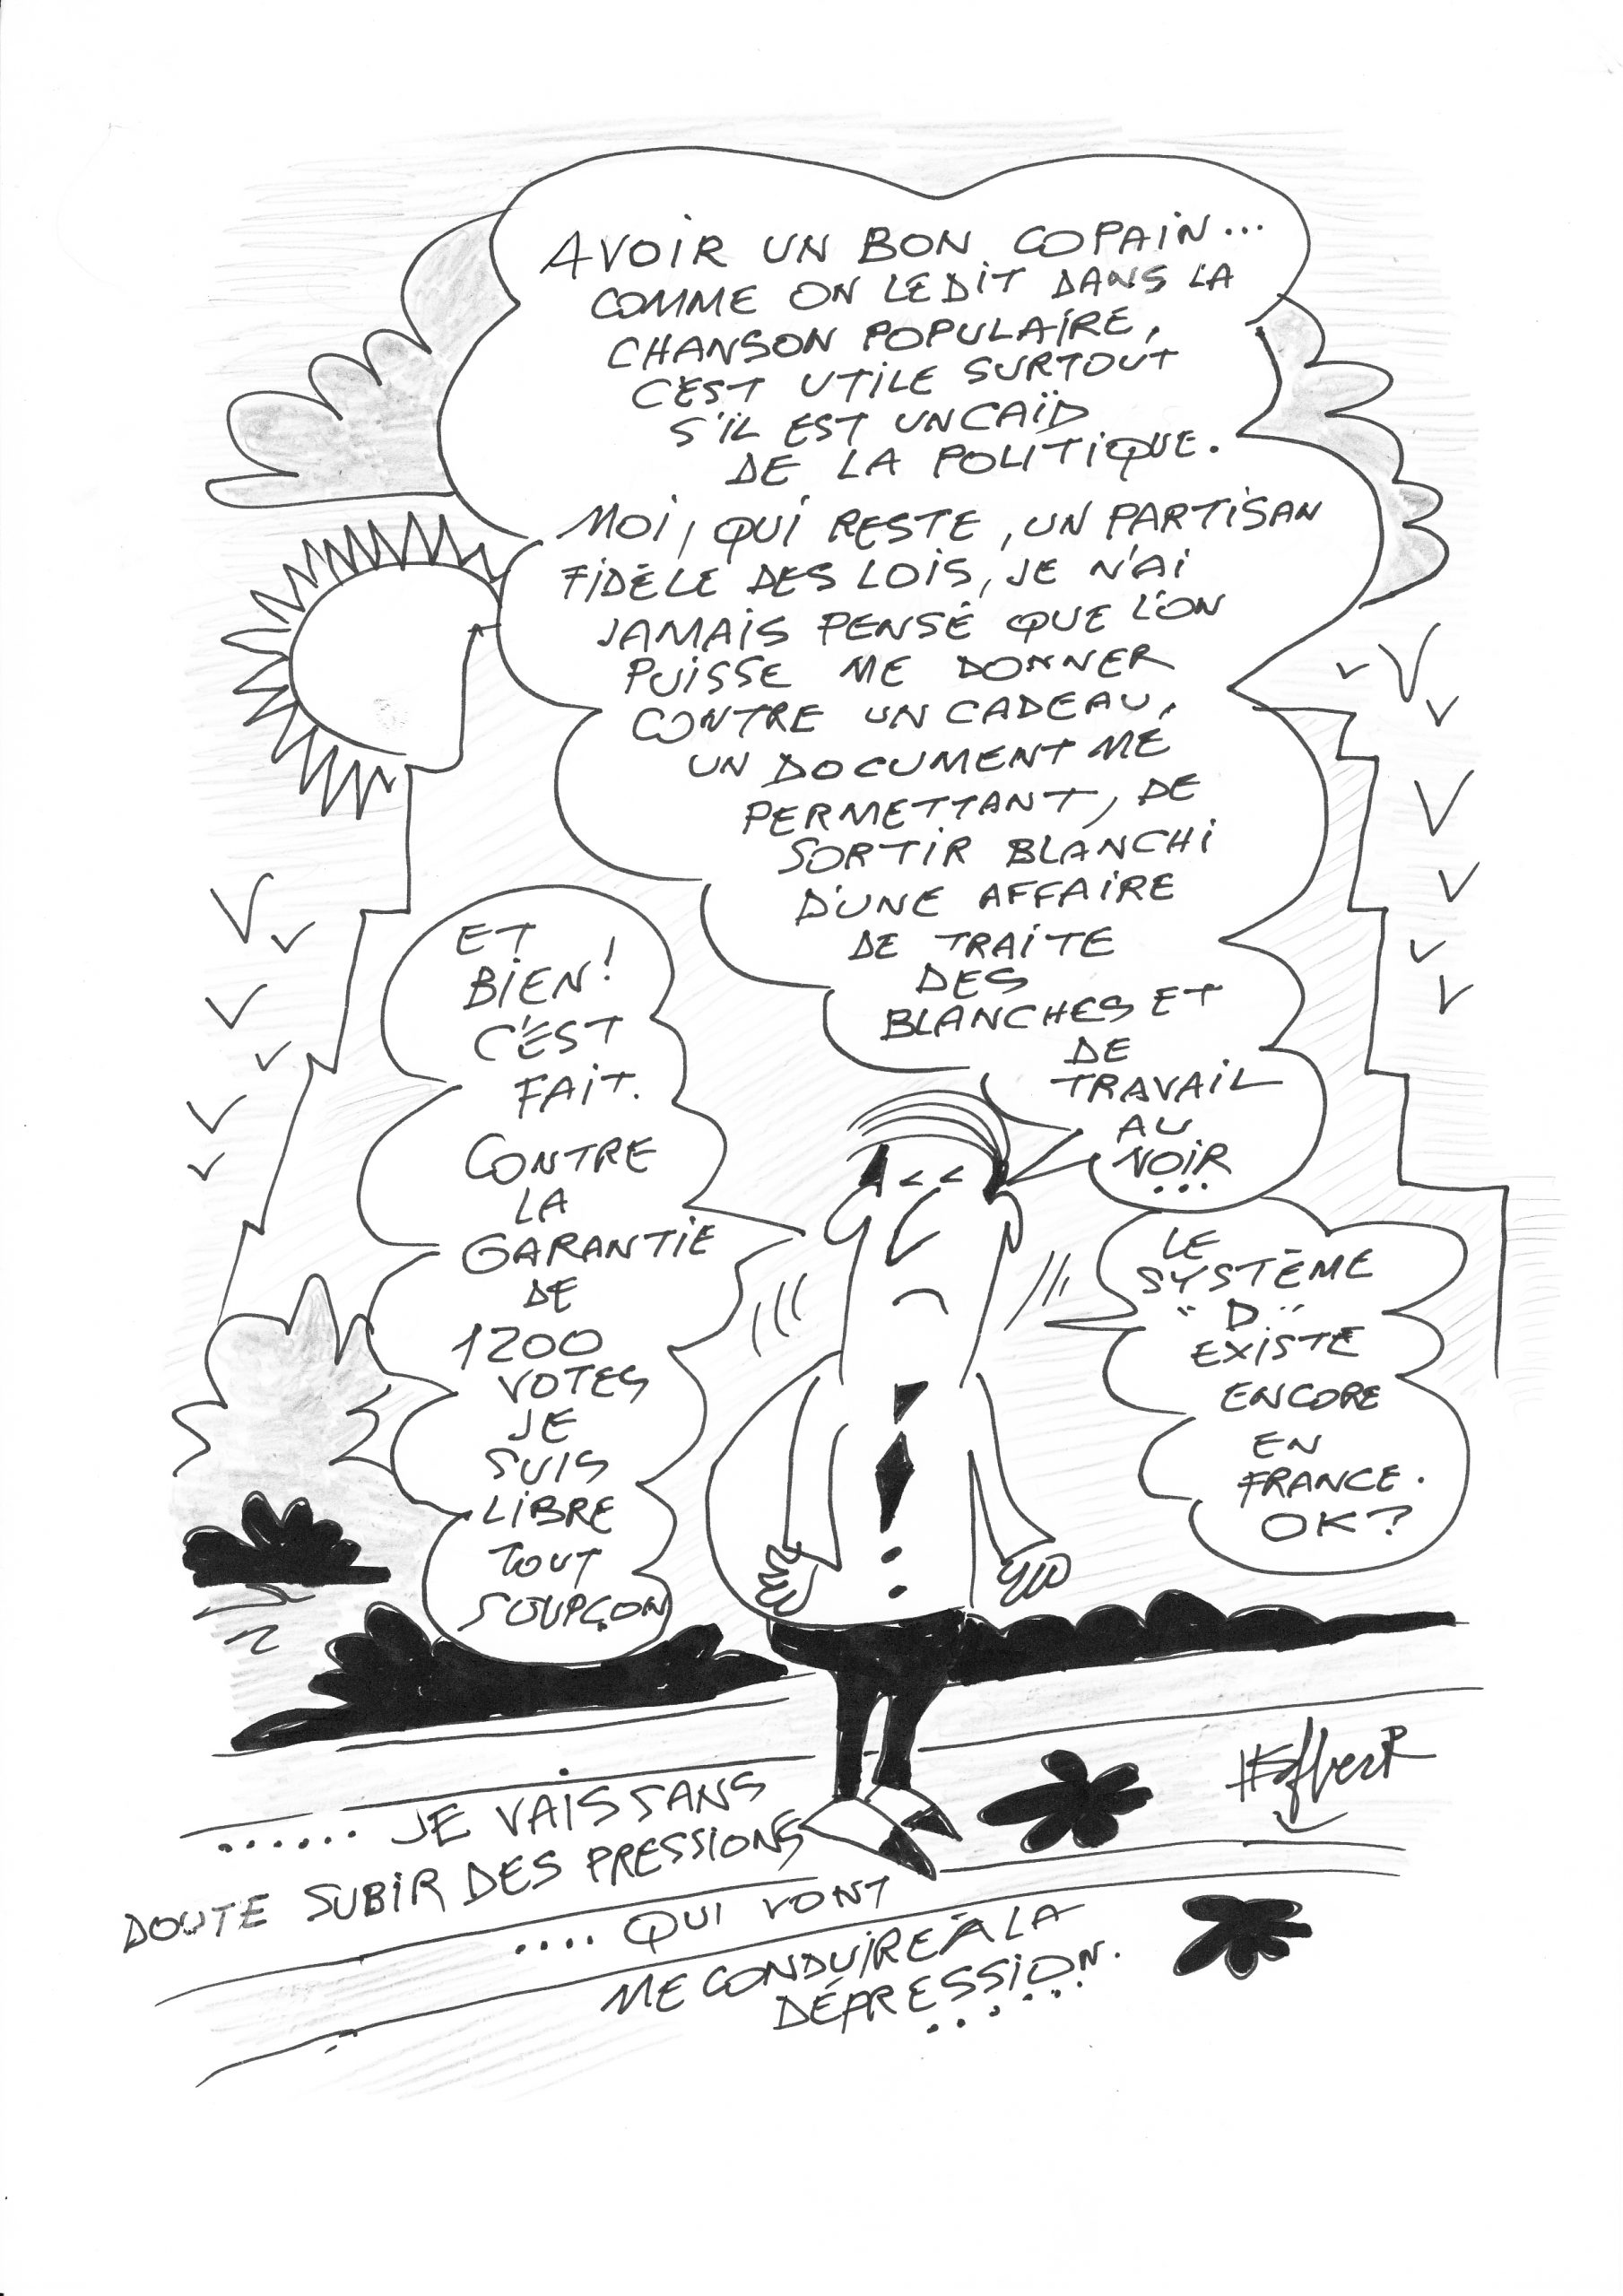 AVOIR UN BON COPAIN...
COMME ON LE DIT DANS LA
CHANSON POPULAIRE,
C'EST UTILE SURTOUT
S'IL EST UN CAÏD
DE LA POLITIQUE.
MOI, QUI RESTE, UN PARTISAN
FIDÈLE DES LOIS, JE N'AI
JAMAIS PENSÉ QUE L'ON
PUISSE ME DONNER
CONTRE UN CADEAU,
UN DOCUMENT ME
PERMETTANT, DE
SORTIR BLANCHI
D'UNE AFFAIRE
DE TRAITE
DES
BLANCHES ET
DE
TRAVAIL
AU
NOIR
...
ET
BIEN!
C'EST
FAIT.
CONTRE
LA
GARANTIE
DE
1200
VOTES
JE
SUIS
LIBRE
TOUT
SOUPÇON
LE
SYSTÈME
"D"
EXISTE
ENCORE
EN
FRANCE.
OK?
...... JE VAIS SANS
DOUTE SUBIR DES PRESSIONS
.... QUI VONT
ME CONDUIRE À LA
DÉPRESSION.
......